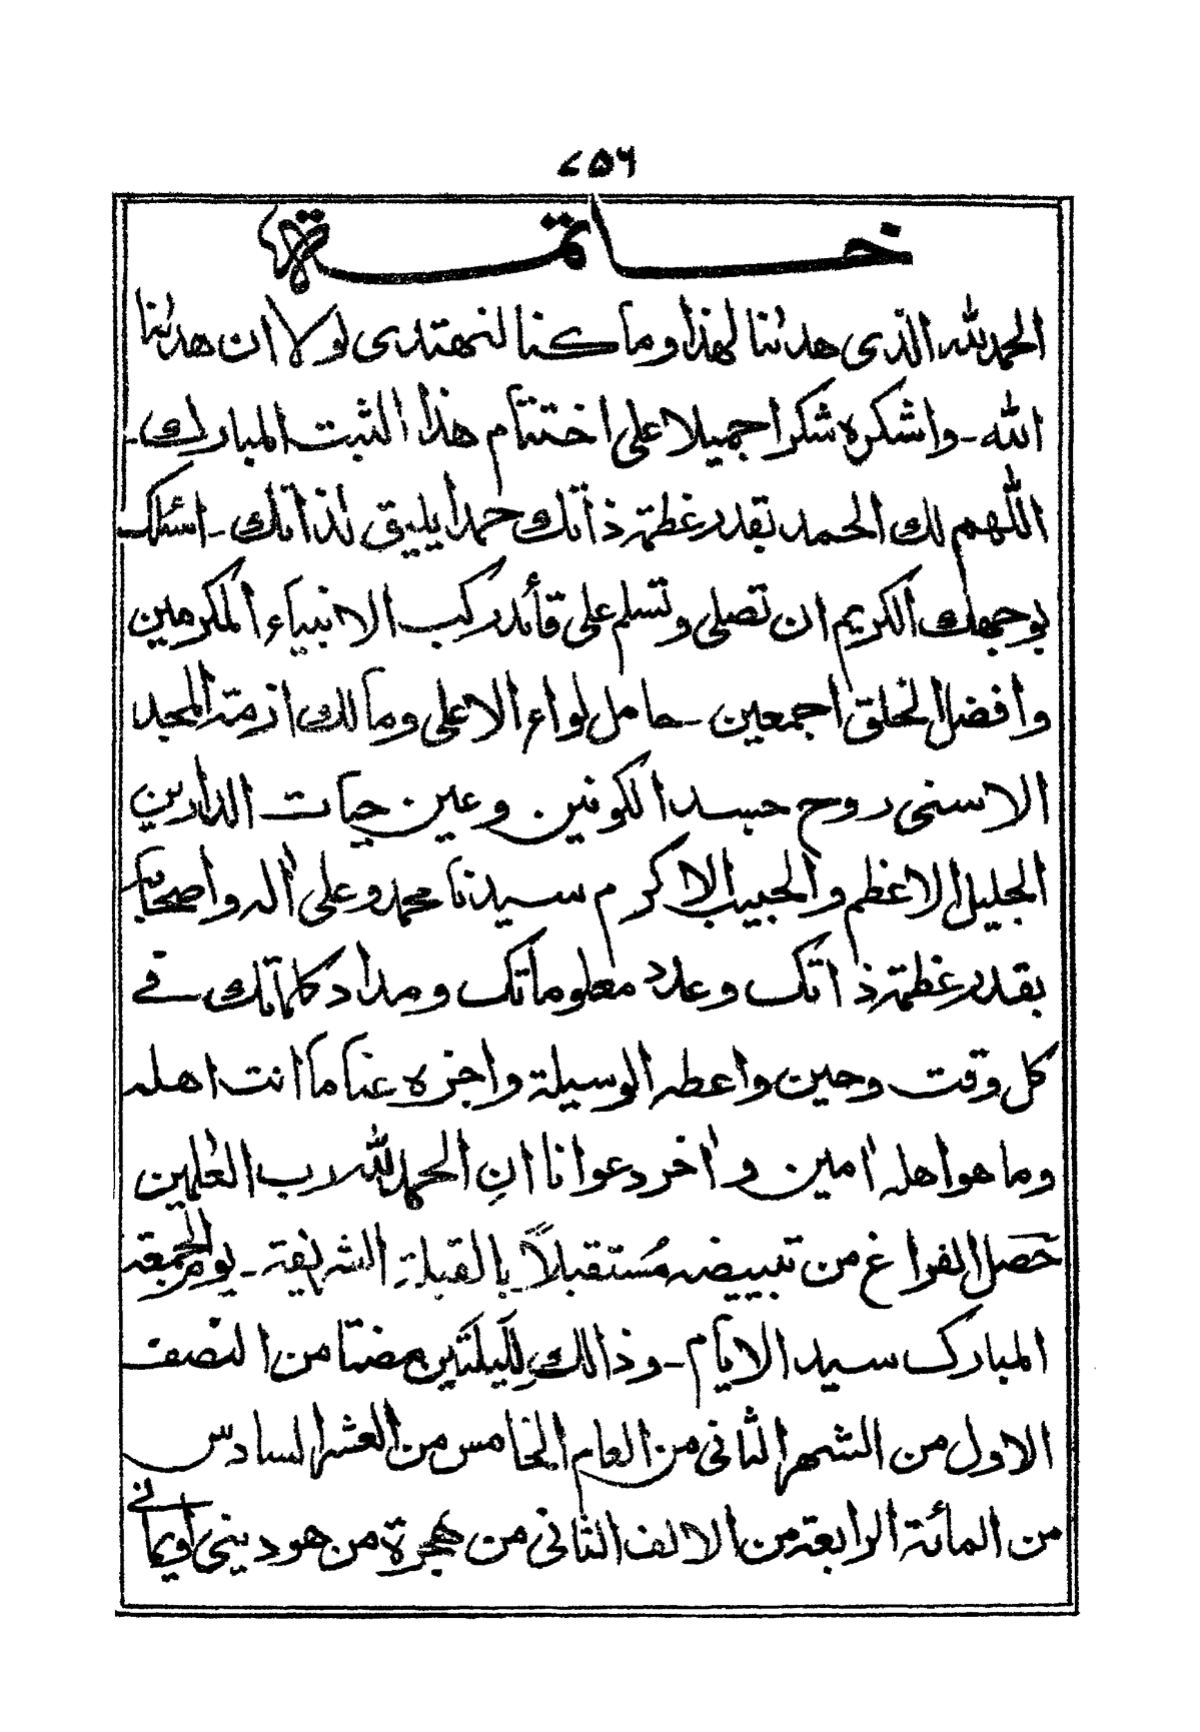 ٧٥٦
خاتمة
الحمد لله الذى هدٰىنا لهذا وما كنا لنهتدى لولا ان هدٰىنا
الله ـ واشكره شكرا جميلا على اختتام هذا الثبت المبارك ـ
اللّٰهم لك الحمد بقدر عظمة ذاتك حمدا يليق لذاتك ـ اسئلك
بوجهك الكريم ان تصلى وتسلم على قائد ركب الانبياء المكرمين
وافضل الخلق اجمعين ـ حامل لواء الاعلى ومالك ازمة المجد
الاسنى روح جسد الكونين وعين حيات الدارين
الجليل الاعظم والحبيب الاكرم سيدنا محمد وعلى اٰله واصحابه
بقدر عظمة ذاتك وعدد معلوماتك ومداد كلماتك فى
كل وقت وحين واعطه الوسيلة واجزه عنا ما انت اهله
وما هو اهله اٰمين واٰخر دعوانا انِ الحمد لله رب العٰلمين
حَصل الفراغ من تبييضه مُستقبلاً بالقبلةِ الشريفة ـ يوم الجمعة
المبارك سيد الايام ـ وذالك لِلَيلتَين مضتا من النصف
الاول من الشهر الثانى من العام الخامس من العشر السادس
من المائة الرابعة من الالف الثانى من هجرة من هو دينى وايمانى